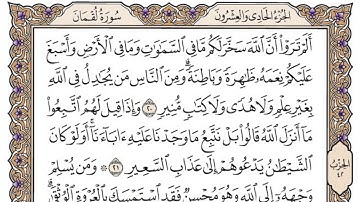 سُورَةُ لُقْمَانَ
الجُزْءُ الحَادِى وَالعِشْرُونَ
أَلَمْ تَرَوْا أَنَّ ٱللَّهَ سَخَّرَ لَكُم مَّا فِى ٱلسَّمَٰوَٰتِ وَمَا فِى ٱلْأَرْضِ وَأَسْبَغَ
عَلَيْكُمْ نِعَمَهُۥ ظَٰهِرَةً وَبَاطِنَةً ۗ وَمِنَ ٱلنَّاسِ مَن يُجَٰدِلُ فِى ٱللَّهِ
بِغَيْرِ عِلْمٍ وَلَا هُدًى وَلَا كِتَٰبٍ مُّنِيرٍ ٢٠ وَإِذَا قِيلَ لَهُمُ ٱتَّبِعُوا۟
مَآ أَنزَلَ ٱللَّهُ قَالُوا۟ بَلْ نَتَّبِعُ مَا وَجَدْنَا عَلَيْهِ ءَابَآءَنَآ ۚ أَوَلَوْ كَانَ
ٱلشَّيْطَٰنُ يَدْعُوهُمْ إِلَىٰ عَذَابِ ٱلسَّعِيرِ ٢١ ۞ وَمَن يُسْلِمْ
وَجْهَهُۥٓ إِلَى ٱللَّهِ وَهُوَ مُحْسِنٌ فَقَدِ ٱسْتَمْسَكَ بِٱلْعُرْوَةِ ٱلْوُثْقَىٰ ۗ
الحِزْب
٤٢